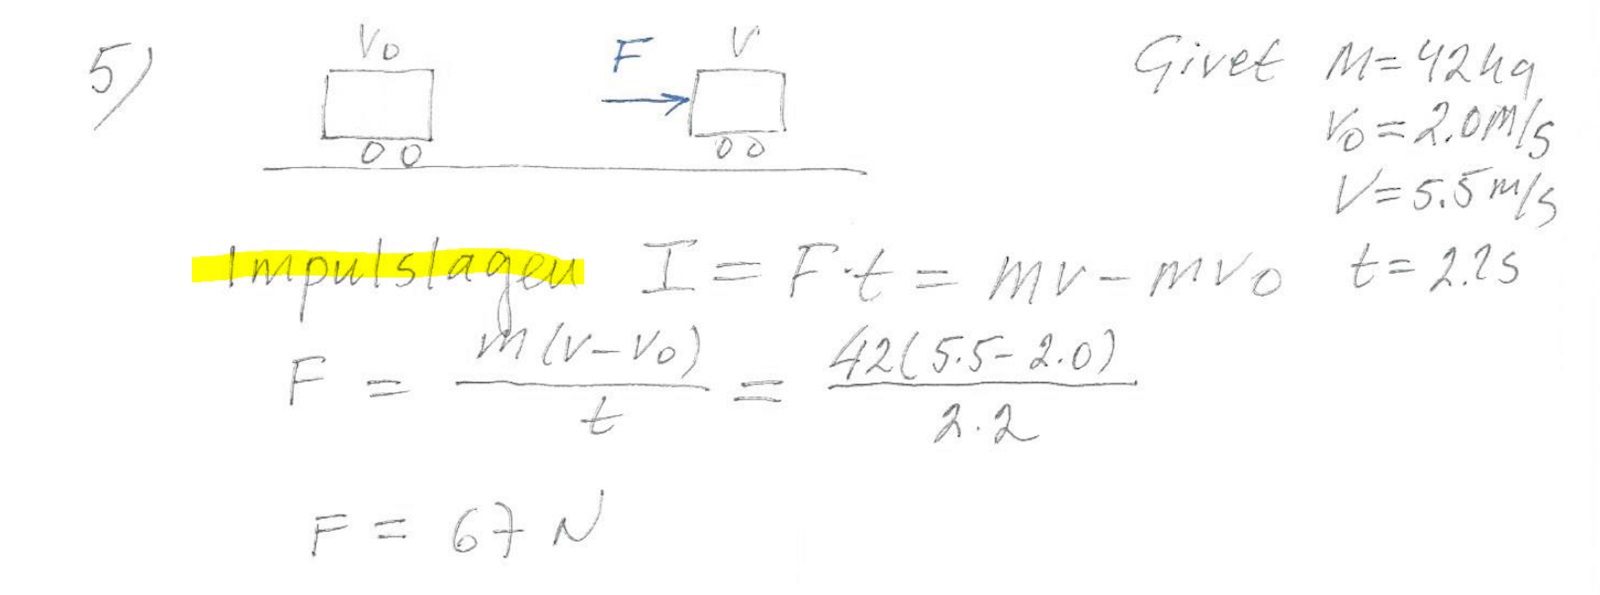 5)
V₀
F
V
Givet M=42kg
V₀=2.0m/s
V=5.5m/s
t=2.2s
Impulslagen I = F·t = mv - mv₀
F = m(v-v₀)/t = 42(5.5-2.0)/2.2
F = 67 N